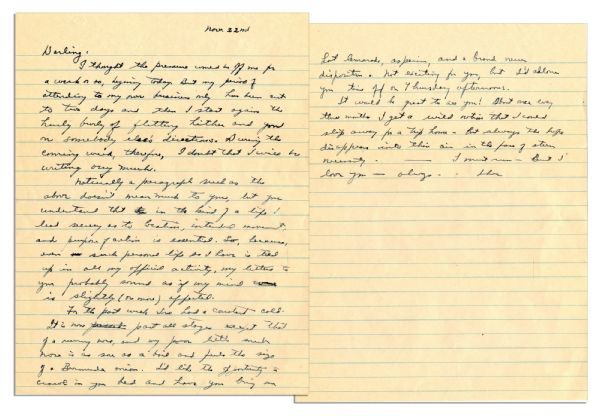 Nov. 22nd
Darling,
I thought the pressure would be off me for
a week or so, beginning today. But my period of
attending to my own business only has been cut
to two days and then I start again the
hurly burly of flitting hither and yon
on somebody else's directions. During the
coming week, therefore, I doubt that I will be
writing very much.
Naturally a paragraph such as the
above doesn't mean much to you, but you
understand that in the kind of a life I
lead secrecy as to location, intended movement,
and purpose of action is essential. So, because,
even such personal life as I have is tied
up in all my official activity, my letters to
you probably sound as if my mind
is slightly (or more) affected.
For the past week I've had a constant cold.
It is now past all stages except that
of a running nose, and my poor little
nose is as sore as a boil and feels the size
of a Bermuda onion. I'd like the opportunity to
crawl in your bed and have you bring me
hot lemonade, aspirin, and a brand new
disposition. Not exciting for you, but I'd allow
you time off on Thursday afternoons.
It would be great to see you! About once every
three months I get a wild notion that I could
slip away for a trip home - but always the hope
disappears into thin air in the face of stern
necessity. I must run - But I
love you - always. Ike